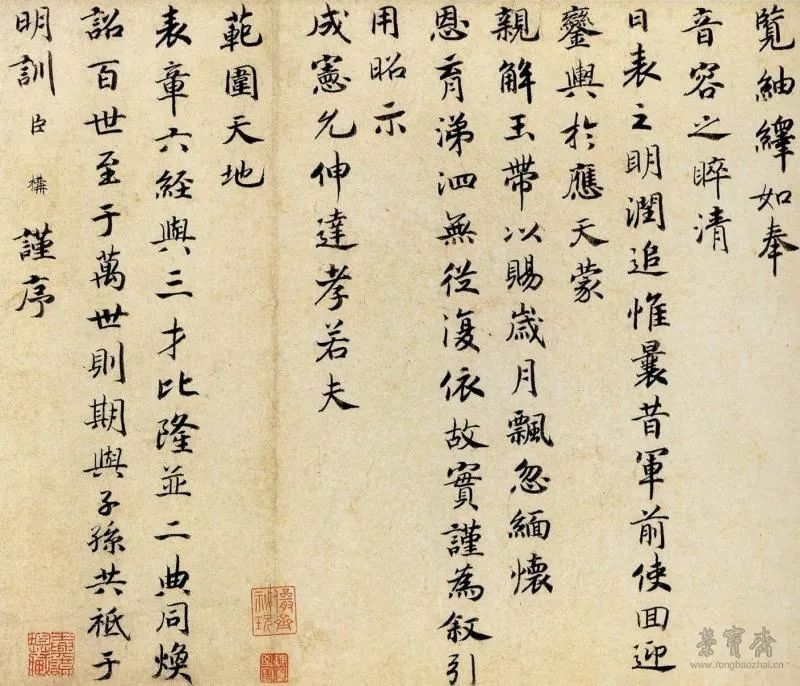 覽紬繹如奉
音容之睟清
日表之明潤追惟曩昔軍前使回迎
鑾輿於應天蒙
親解玉帶以賜歲月飄忽緬懷
恩育涕泗無從復依故實謹為叙引
用昭示
成憲允伸達孝若夫
範圍天地
表章六經與三才比隆並二典同煥
詔百世至于萬世則期與子孫共祗于
明訓臣構謹序
榮寶齋
www.rongbaozhai.cn